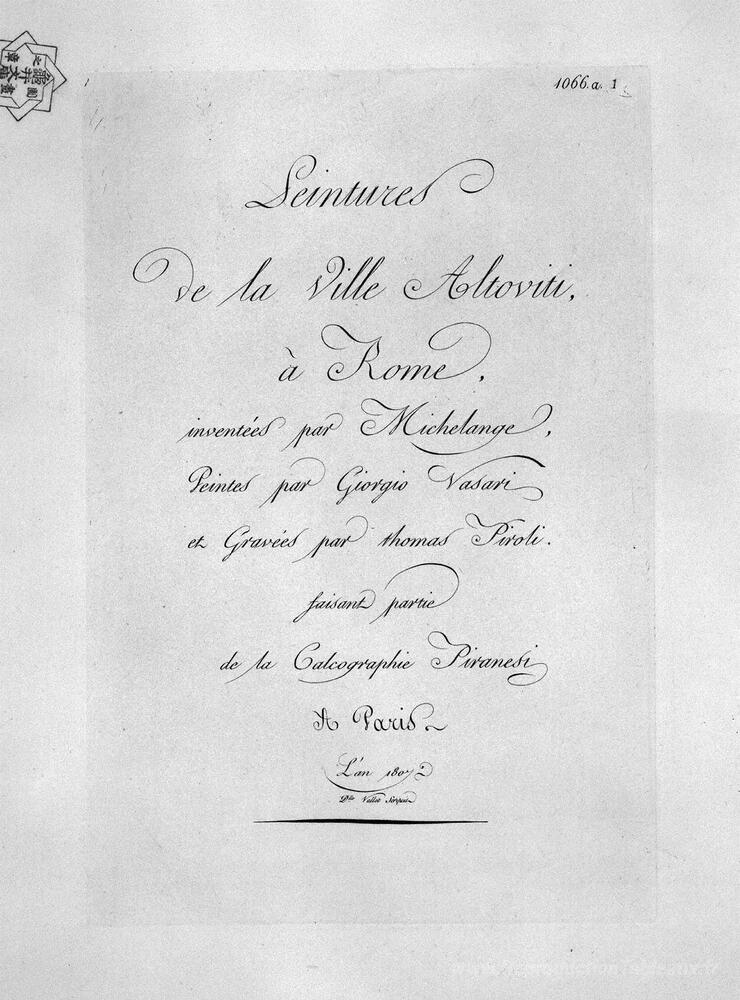 1066.a. 1
Peintures
de la Ville Altoviti,
à Rome,
inventées par Michelange,
Peintes par Giorgio Vasari
et Gravées par thomas Piroli.
faisant partie
de la Calcographie Piranesi
A Paris.
L'an 1807
Dlle Vallée Sculp